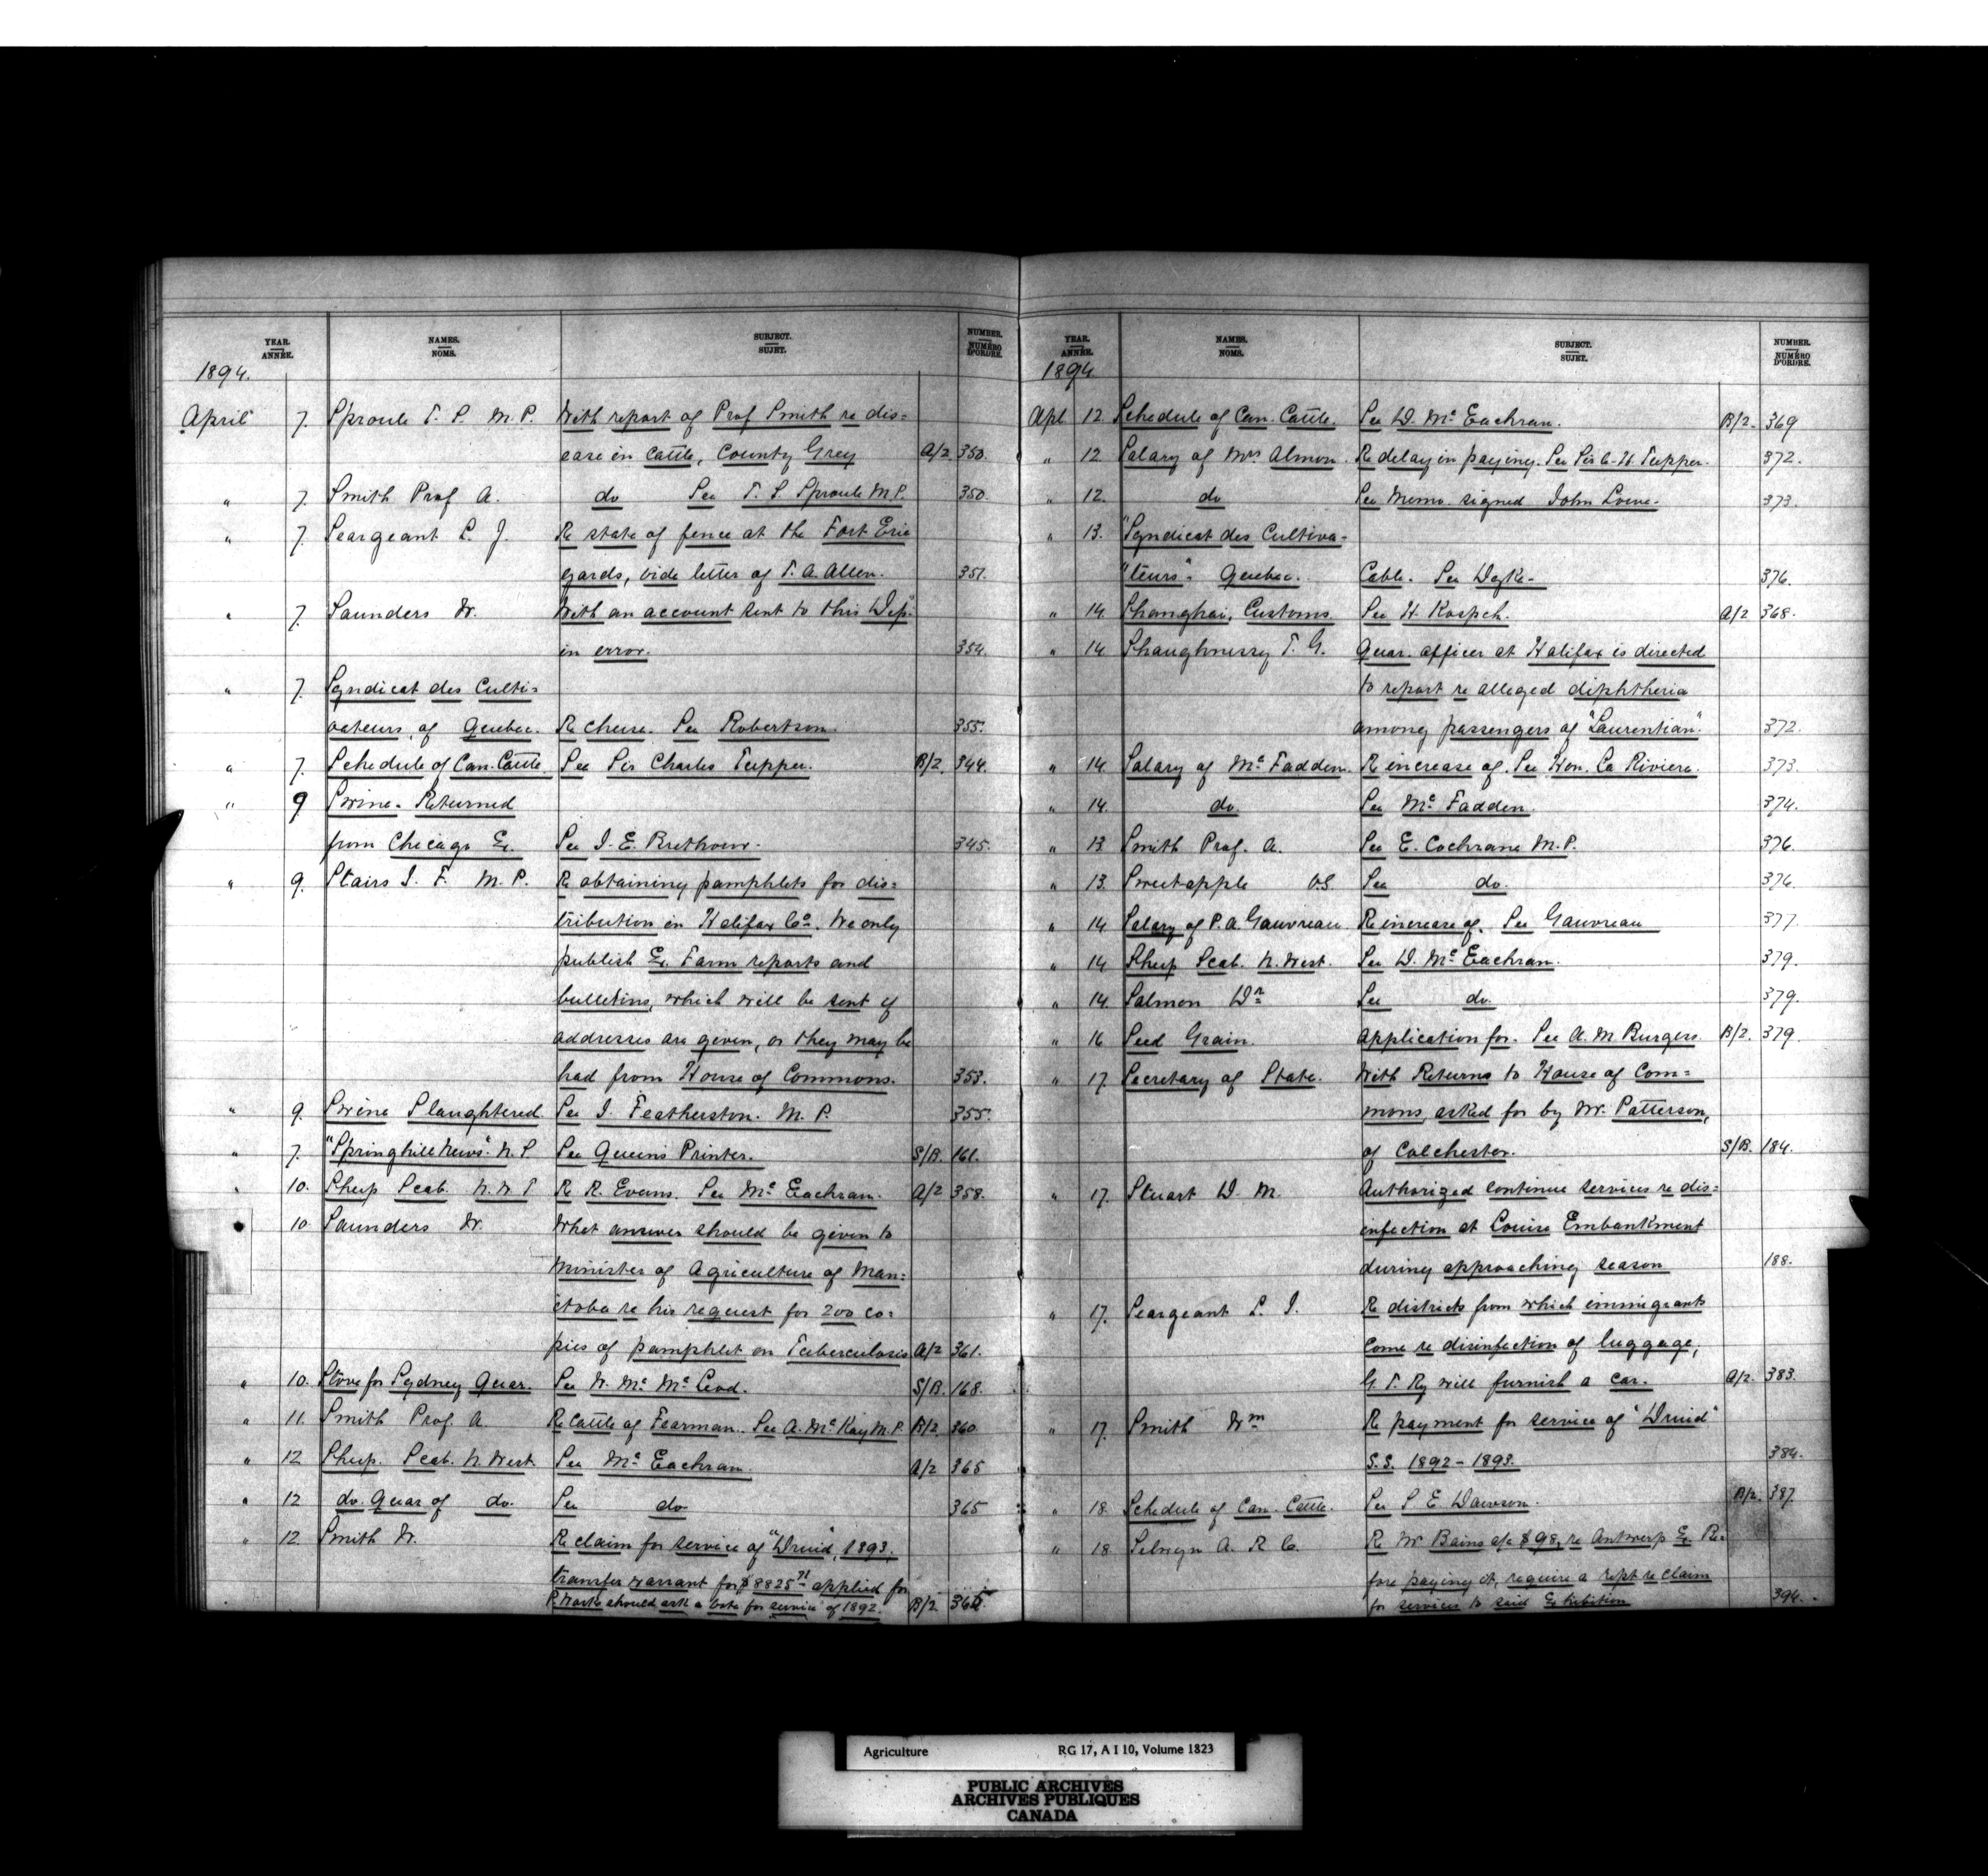 YEAR. NAMES. SUBJECT. NUMBER.
ANNÉE. NOMS. SUJET. NUMÉRO D'ORDRE.
1894.
April 7. Sproule T. S. M. P. With report of Prof Smith re dis=
ease in Cattle, County Grey A/2 350.
" 7. Smith Prof A. do See T. S. Sproule M.P. 350.
" 7. Seargeant L. J. Re state of fence at the Fort Erie
yards, vide letter of T. A. Allen. 351.
" 7. Saunders W. With an account sent to this Dep.
in error. 354.
" 7. Syndicat des Culti=
vateurs, of Quebec. Re cheese. See Robertson. 355.
" 7. Schedule of Can. Cattle See Sir Charles Tupper. B/2. 344.
" 9 Swine - Returned
from Chicago Ex. See J. E. Brethour. 345.
" 9. Stairs J. F. M. P. Re obtaining pamphlets for dis=
tribution in Halifax Co. We only
publish Ex. Farm reports and
bulletins, which will be sent if
addresses are given, or they may be
had from House of Commons. 353.
" 9. Swine Slaughtered See J. Featherston. M. P. 355.
" 7. "Springhill News". N.S. See Queen's Printer. S/B. 161.
" 10. Sheep Scab. N. W. T Re R. Evans. See McEachran. A/2 358.
10. Saunders W. What answer should be given to
Minister of Agriculture of Man=
itoba re his request for 200 co=
pies of pamphlet on Tuberculosis A/2 361.
" 10. Stove for Sydney Quar. See W. Mc McLeod. S/B. 168.
" 11. Smith Prof. A. Re Cattle of Fearman. See A. McKay M.P. B/2. 360.
" 12 Sheep. Scab. N. West. See McEachran. A/2 365
" 12 do. Quar of do. See do 365
" 12. Smith W. Re claim for service of "Druid", 1893,
transfer warrant for $8825 71 applied for
P. Works should ask a vote for service of 1892. B/2 365.
YEAR. NAMES. SUBJECT. NUMBER.
ANNÉE. NOMS. SUJET. NUMÉRO D'ORDRE.
1894.
Apl 12. Schedule of Can. Cattle. See D. McEachran. B/2. 369
" 12. Salary of Mrs Almon. Re delay in paying. See Sir C. H. Tupper. 372.
" 12. do See Memo. signed John Lowe. 373.
" 13. "Syndicat des Cultiva-
"teurs". Quebec. Cable. See Dyke- 376.
" 14. Shanghai, Customs See H. Kospch. A/2 368.
" 14 Shaughnessy T. G. Quar. officer at Halifax is directed
to report re alleged diphtheria
among passengers of "Laurentian". 372.
" 14. Salary of McFadden. Re increase of. See Hon. La Riviere. 373.
" 14. do. See McFadden. 374.
" 13. Smith Prof. A. See E. Cochrane M.P. 376.
" 13. Sweetapple V.S. See do. 376.
" 14. Salary of P. A. Gauvreau Re increase of. See Gauvreau 377.
" 14 Sheep Scab. N. West. See D. McEachran. 379.
" 14. Salmon Dr See do. 379.
" 16 Seed Grain. Application for. See A. M. Burgess. B/2. 379.
" 17. Secretary of State. With Returns to House of Com=
mons asked for by Mr. Patterson,
of Colchester. S/B. 184.
" 17. Stuart D. M. Authorized continue services re dis=
infection at Louise Embankment
during approaching season 188.
" 17. Seargeant L. J. Re districts from which immigrants
come re disinfection of luggage,
G. T. Ry will furnish a car. A/2. 383.
" 17. Smith Wm Re payment for service of "Druid"
S.S. 1892-1893. 384.
" 18. Schedule of Can. Cattle. See S. E. Dawson. B/2. 387.
" 18 Selwyn A. R. C. Re W Bains a/c $98, re Antwerp Ex. Be-
fore paying it, require a rept re claim
for services to said Exhibition 394.
Agriculture RG 17, A I 10, Volume 1823
PUBLIC ARCHIVES
ARCHIVES PUBLIQUES
CANADA